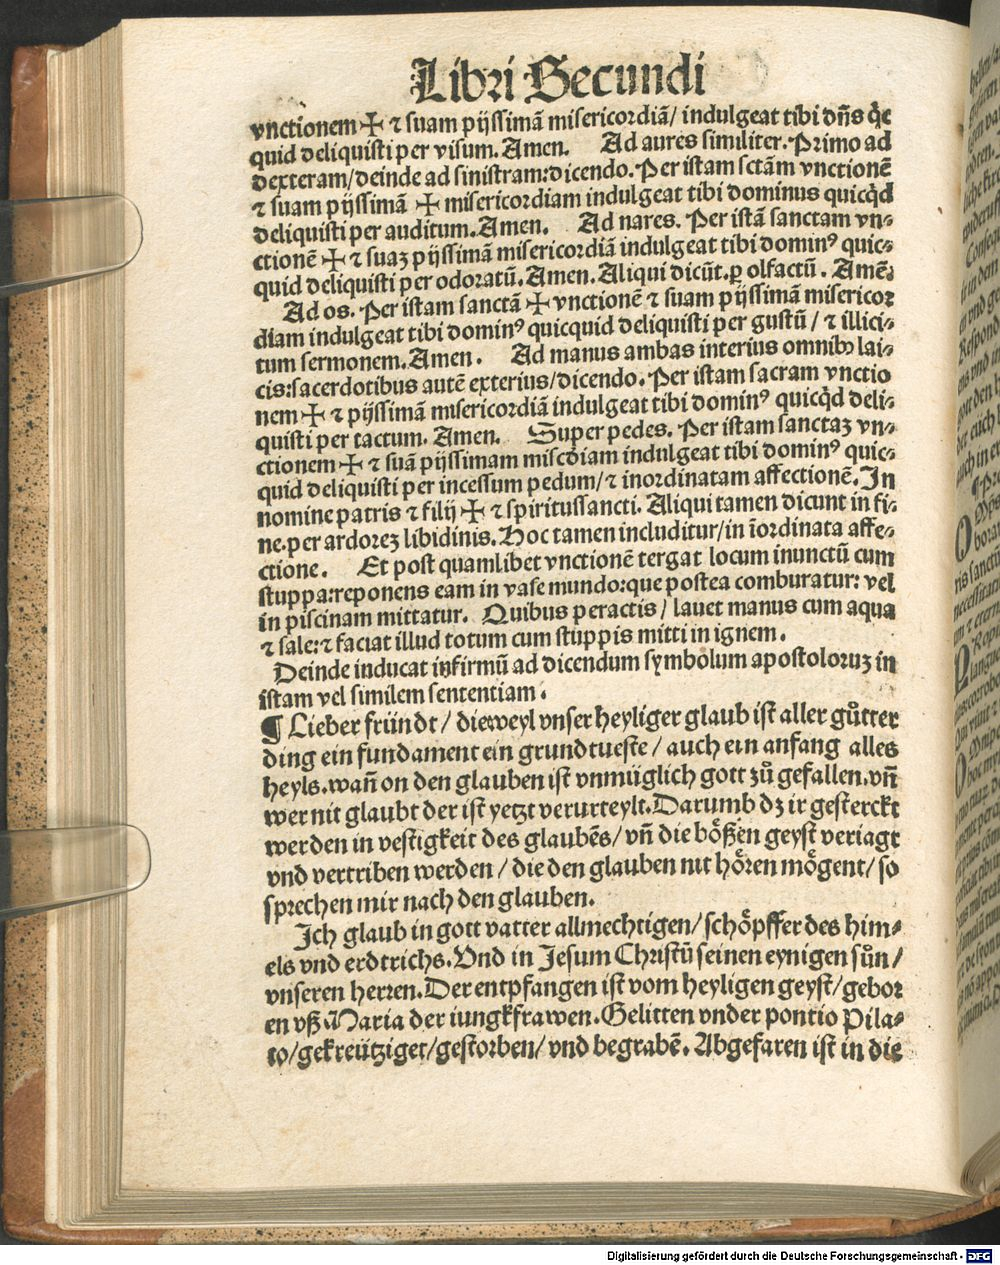 Libri Secundi
vnctionem ✠ ⁊ suam pijssimā misericordiā/ indulgeat tibi dn̄s qͥc
quid deliquisti per visum. Amen. Ad aures similiter. Primo ad
dexteram/deinde ad sinistram:dicendo. Per istam sctām vnctionē
⁊ suam pijssimā ✠ misericordiam indulgeat tibi dominus quicqͥd
deliquisti per auditum. Amen. Ad nares. Per istā sanctam vn⸗
ctionē ✠ ⁊ suaꝫ pijssimā misericordiā indulgeat tibi dominꝰ quic⸗
quid deliquisti per odoratū. Amen. Aliqui dicūt. ꝑ olfactū. Amē.
Ad os. Per istam sanctā ✠ vnctionē ⁊ suam pijssimā misericor
diam indulgeat tibi dominꝰ quicquid deliquisti per gustū / ⁊ illici⸗
tum sermonem. Amen. Ad manus ambas interius omnibꝰ lai⸗
cis:sacerdotibus autē exterius/dicendo. Per istam sacram vnctio
nem ✠ ⁊ pijssimā misericordiā indulgeat tibi dominꝰ quicqͥd deli⸗
quisti per tactum. Amen. Super pedes. Per istam sanctaꝫ vn⸗
ctionem ✠ ⁊ suā pijssimam miscd̄iam indulgeat tibi dominꝰ quic⸗
quid deliquisti per incessum pedum/⁊ inordinatam affectionē. In
nomine patris ⁊ filij ✠ ⁊ spiritussancti. Aliqui tamen dicunt in fi⸗
ne. per ardoreꝫ libidinis. Hoc tamen includitur/in īordinata affe⸗
ctione. Et post quamlibet vnctionē tergat locum inunctū cum
stuppa:reponens eam in vase mundo:que postea comburatur: vel
in piscinam mittatur. Quibus peractis / lauet manus cum aqua
⁊ sale:⁊ faciat illud totum cum stuppis mitti in ignem.
Deinde inducat infirmū ad dicendum symbolum apostoloruꝫ in
istam vel similem sententiam.
¶ Lieber fründt / dieweyl vnser heyliger glaub ist aller gůtter
ding ein fundament ein grundtueste / auch ein anfang alles
heyls. wañ on den glauben ist vnmüglich gott zů gefallen. vñ
wer nit glaubt der ist yetzt verurteylt. Darumb dꝫ ir gesterckt
werden in vestigkeit des glaubēs/ vñ die bößen geyst veriagt
vnd vertriben werden / die den glauben nit hören mögent/ so
sprechen mir nach den glauben.
Ich glaub in gott vatter allmechtigen/ schöpffer des him⸗
els vnd erdtrichs. Vnd in Jesum Christū seinen eynigen sůn/
vnseren herren. Der entpfangen ist vom heyligen geyst/gebor
en vß Maria der iungkfrawen. Gelitten vnder pontio Pila⸗
to/gekreütziget/gestorben/ vnd begrabē. Abgefaren ist in die
Digitalisierung gefördert durch die Deutsche Forschungsgemeinschaft - DFG